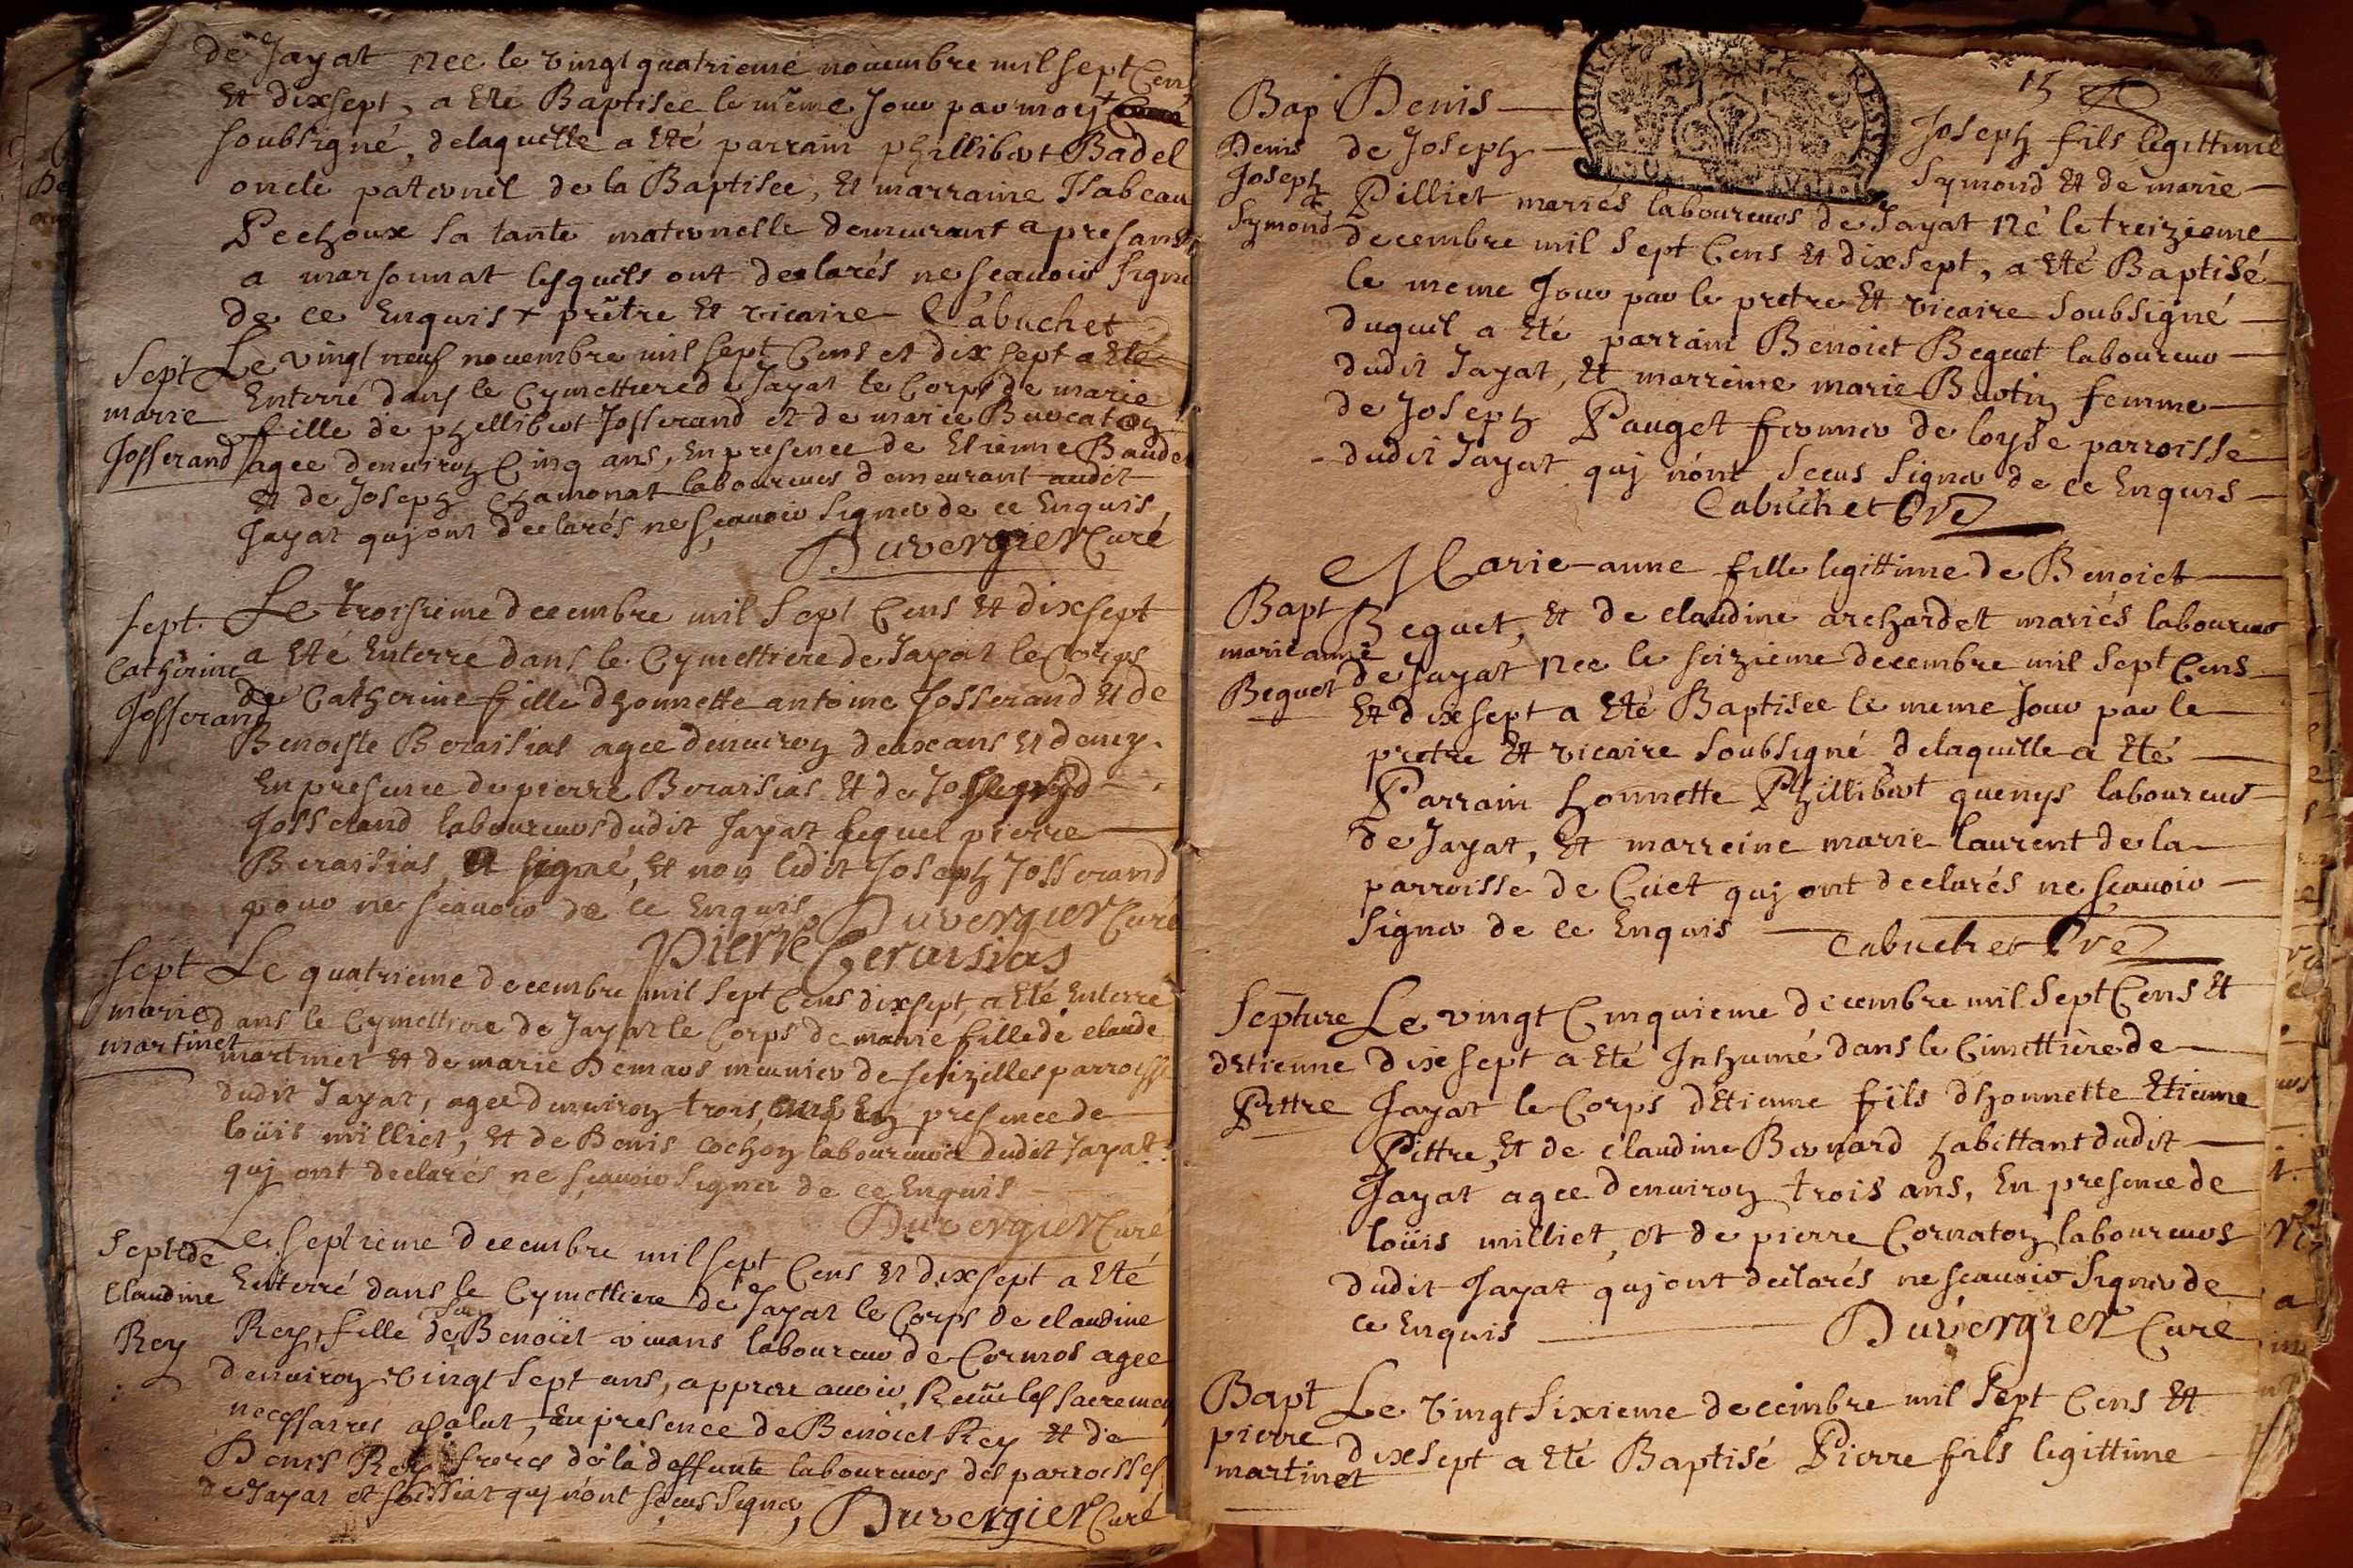 de Jayat née le vingt quatrieme nouembre mil sept Cens
Et dixsept, a Eté Baptisée le même Jour par moy +
soubsigné, delaquelle a Eté parrain phillibert Badel
oncle paternel de la Baptisée, Et marraine Isabeau
Pechoux sa tante maternelle demeurant a presant
a marsonnat lesquels ont declarés ne scauoir signer
de ce Enquis + prêtre Et vicaire Cabuchet
Sept
marie
Josserand
Le vingt neuf nouembre mil sept Cens et dix sept a Eté
Enterré dans le Cymettiere de Jayat le Corps de marie
fille de phillibert Josserand et de marie Buvcatoy
agee denuiron Cinq ans, En presence de Etienne Baudet
Et de Joseph Chamonat laboureurs demeurant audit
Jayat qui ont declarés ne scauoir signer de ce Enquis,
Duvergier Curé
sept.
Catherine
Josserand
Le troisieme decembre mil sept Cens Et dixsept
a Eté Enterré dans le Cymettiere de Jayat le Corps
de Catherine fille dhonnette antoine Josserand Et de
Benoiste Beraisias agee denuiron deux ans Et demy.
En presence de pierre Beraisias Et de
Josserand laboureurs dudit Jayat lequel pierre
Beraisias a signé, Et non ledit Joseph Josserand
pour ne scauoir de ce Enquis, Duvergier Curé
Pierre Beraisias
sept
marie
martinet
Le quatrieme decembre mil sept Cens dixsept, a Eté Enterré
dans le Cymettiere de Jayat le Corps de marie fille de claude
martinet Et de marie Demars meunier de seizilles parroisse
dudit Jayat, agee denuiron trois ans, En presence de
loüis milliet, Et de Denis Cochon laboureurs dudit Jayat
qui ont declarés ne scauoir signer de ce Enquis
Duvergier Curé
Sept de
Claudine
Rey
Le septieme decembre mil sept Cens Et dixsept a Eté
Enterré dans le Cymettiere de Jayat le Corps de claudine
Rey, fille de feu Benoict viuans laboureur de Cormos agee
denuiron vingt sept ans, appres auoir Receu les sacremens
necessaires a salut, En presence de Benoict Rey Et de
Denis Rey freres de la deffunte laboureurs des parroisses
de Jayat et foissiat qui n'ont sceus signer, Duvergier Curé
15
Bap
Denis
Joseph
Symond
Denis — Joseph fils legittime
de Joseph — Symond Et de marie
Pilliet mariés laboureurs de Jayat né le treizieme
decembre mil sept Cens Et dixsept, a Eté Baptisé
le meme Jour par le pretre Et vicaire soubsigné
duquel a Eté parrain Benoict Beguet laboureur
dudit Jayat, Et marreine marie Burtin femme
de Joseph Pauget fermier de loyse parroisse
dudit Jayat qui n'ont sceus signer de ce Enquis
Cabuchet Pre
Bapt
marie anne
Beguet
Marie-anne fille legittime de Benoict
Beguet, Et de claudine archardet mariés laboureurs
de Jayat née le seizieme decembre mil sept Cens
Et dixsept a Eté Baptisée le meme Jour par le
pretre Et vicaire soubsigné, delaquelle a Eté
Parrain honnette Phillibert quenys laboureur
de Jayat, Et marreine marie laurent de la
parroisse de Cuet qui ont declarés ne scauoir
signer de ce Enquis Cabuchet Pre
Septure
dEtienne
Pittre
Le vingt Cinquieme decembre mil sept Cens Et
dixsept a Eté Inhumé dans le Cimettiere de
Jayat le Corps dEtienne fils dhonnette Etienne
Pittre, Et de claudine Bernard habittant dudit
Jayat agee denuiron trois ans, En presence de
loüis milliet, et de pierre Cornaton laboureurs
dudit Jayat qui ont declarés ne scauoir signer de
ce Enquis Duvergier Curé
Bapt
pierre
martinet
Le vingt sixieme decembre mil sept Cens Et
dixsept a Eté Baptisé Pierre fils legittime